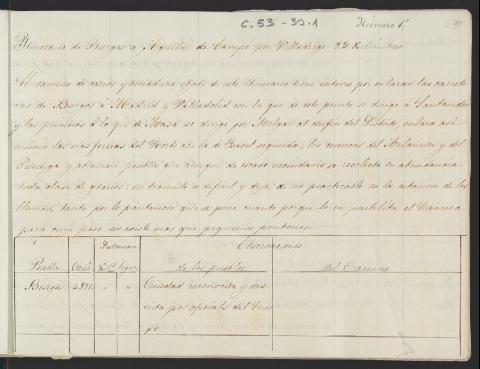 C.53-33.1
Número 1º
Itinerario de Burgos a Aguilar de Campo por Villadiego 82 Kilómetros
El camino de carros y herradura objeto de este Itinerario tiene interes por enlazar las carrete
ras de Burgos á Madrid y Valladolid con la que de este punto se dirige a Santander
y las primeras á la que de se dirige por Melgar al confin del Distrito, enlaza asi
mismo las vias ferreas del Norte con la de segunda; las cuencas del Arlanzon y del
Pisuerga y atraviesa pueblos que aunque de escaso vecindario se recolecta en abundancia
toda clase de granos: su transito es dificil y deja de ser practicable en la estacion de las
lluvias, tanto por lo pantanoso que se pone cuanto porque lo imposibilita el
para cuyo paso no existe más que pequeños pontones.
Distancias
Observaciones
Pueblos
de los pueblos
del Camino
Burgos
Ciudad reconocida y des
crita por oficiales del Cuer
po